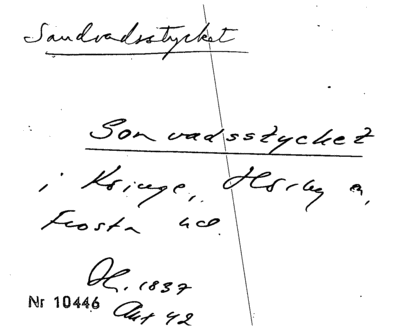 Sandvadsstycket
Sonvadsstycket
i Kringe, Hörby sn,
Frosta hd.
1837
Nr 10446 Akt 42